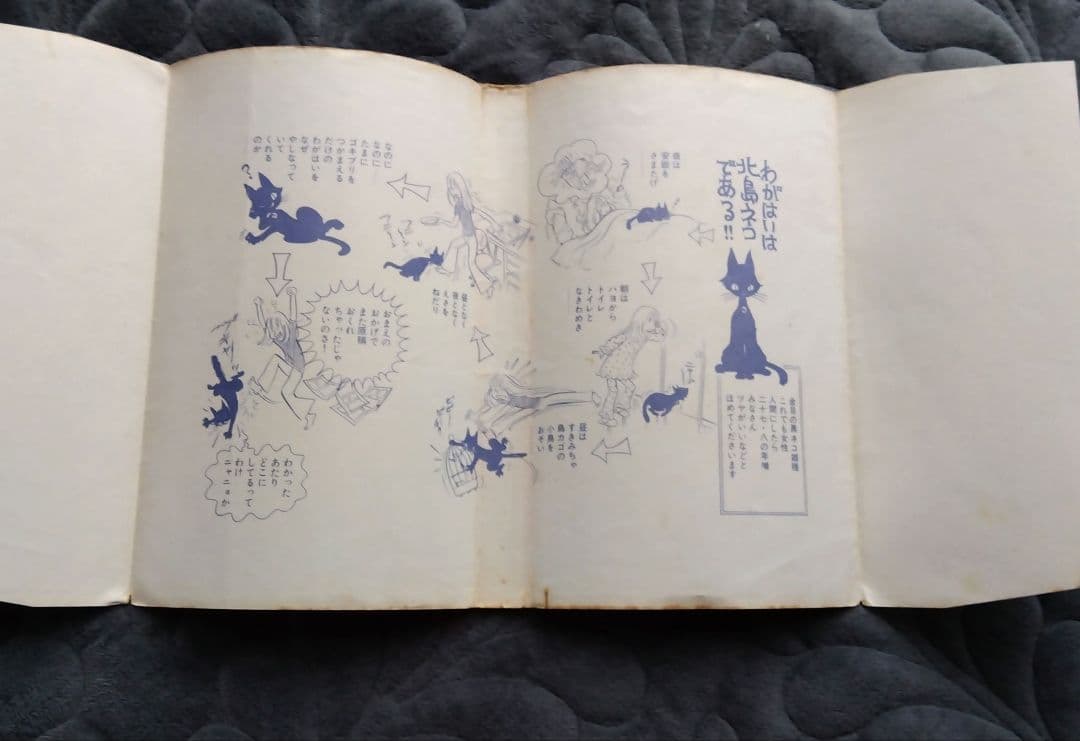 わがはいは
北島ネコ
である!!
金目の黒ネコ雑種
これでも女性
人間にしたら
二十七・八の年増
みなさん
ツヤがいいなどと
ほめてくださいます
夜は
安眠を
さまたげ
朝は
ハヨから
トイレ
トイレと
なきわめき
ニャーッ
昼は
すきみちゃ
鳥カゴの
小鳥を
おそい
昼となく
夜となく
えさを
ねだり
なのに
なのに
たまに
ゴキブリを
つかまえる
だけの
わがはいを
なぜ
やしなって
いて
くれる
のか
?
おまえの
おかげで
また原稿
おくれ
ちゃったじゃ
ないのさ!
わかった
あたり
どこに
してるって
わけ
ニャニョか